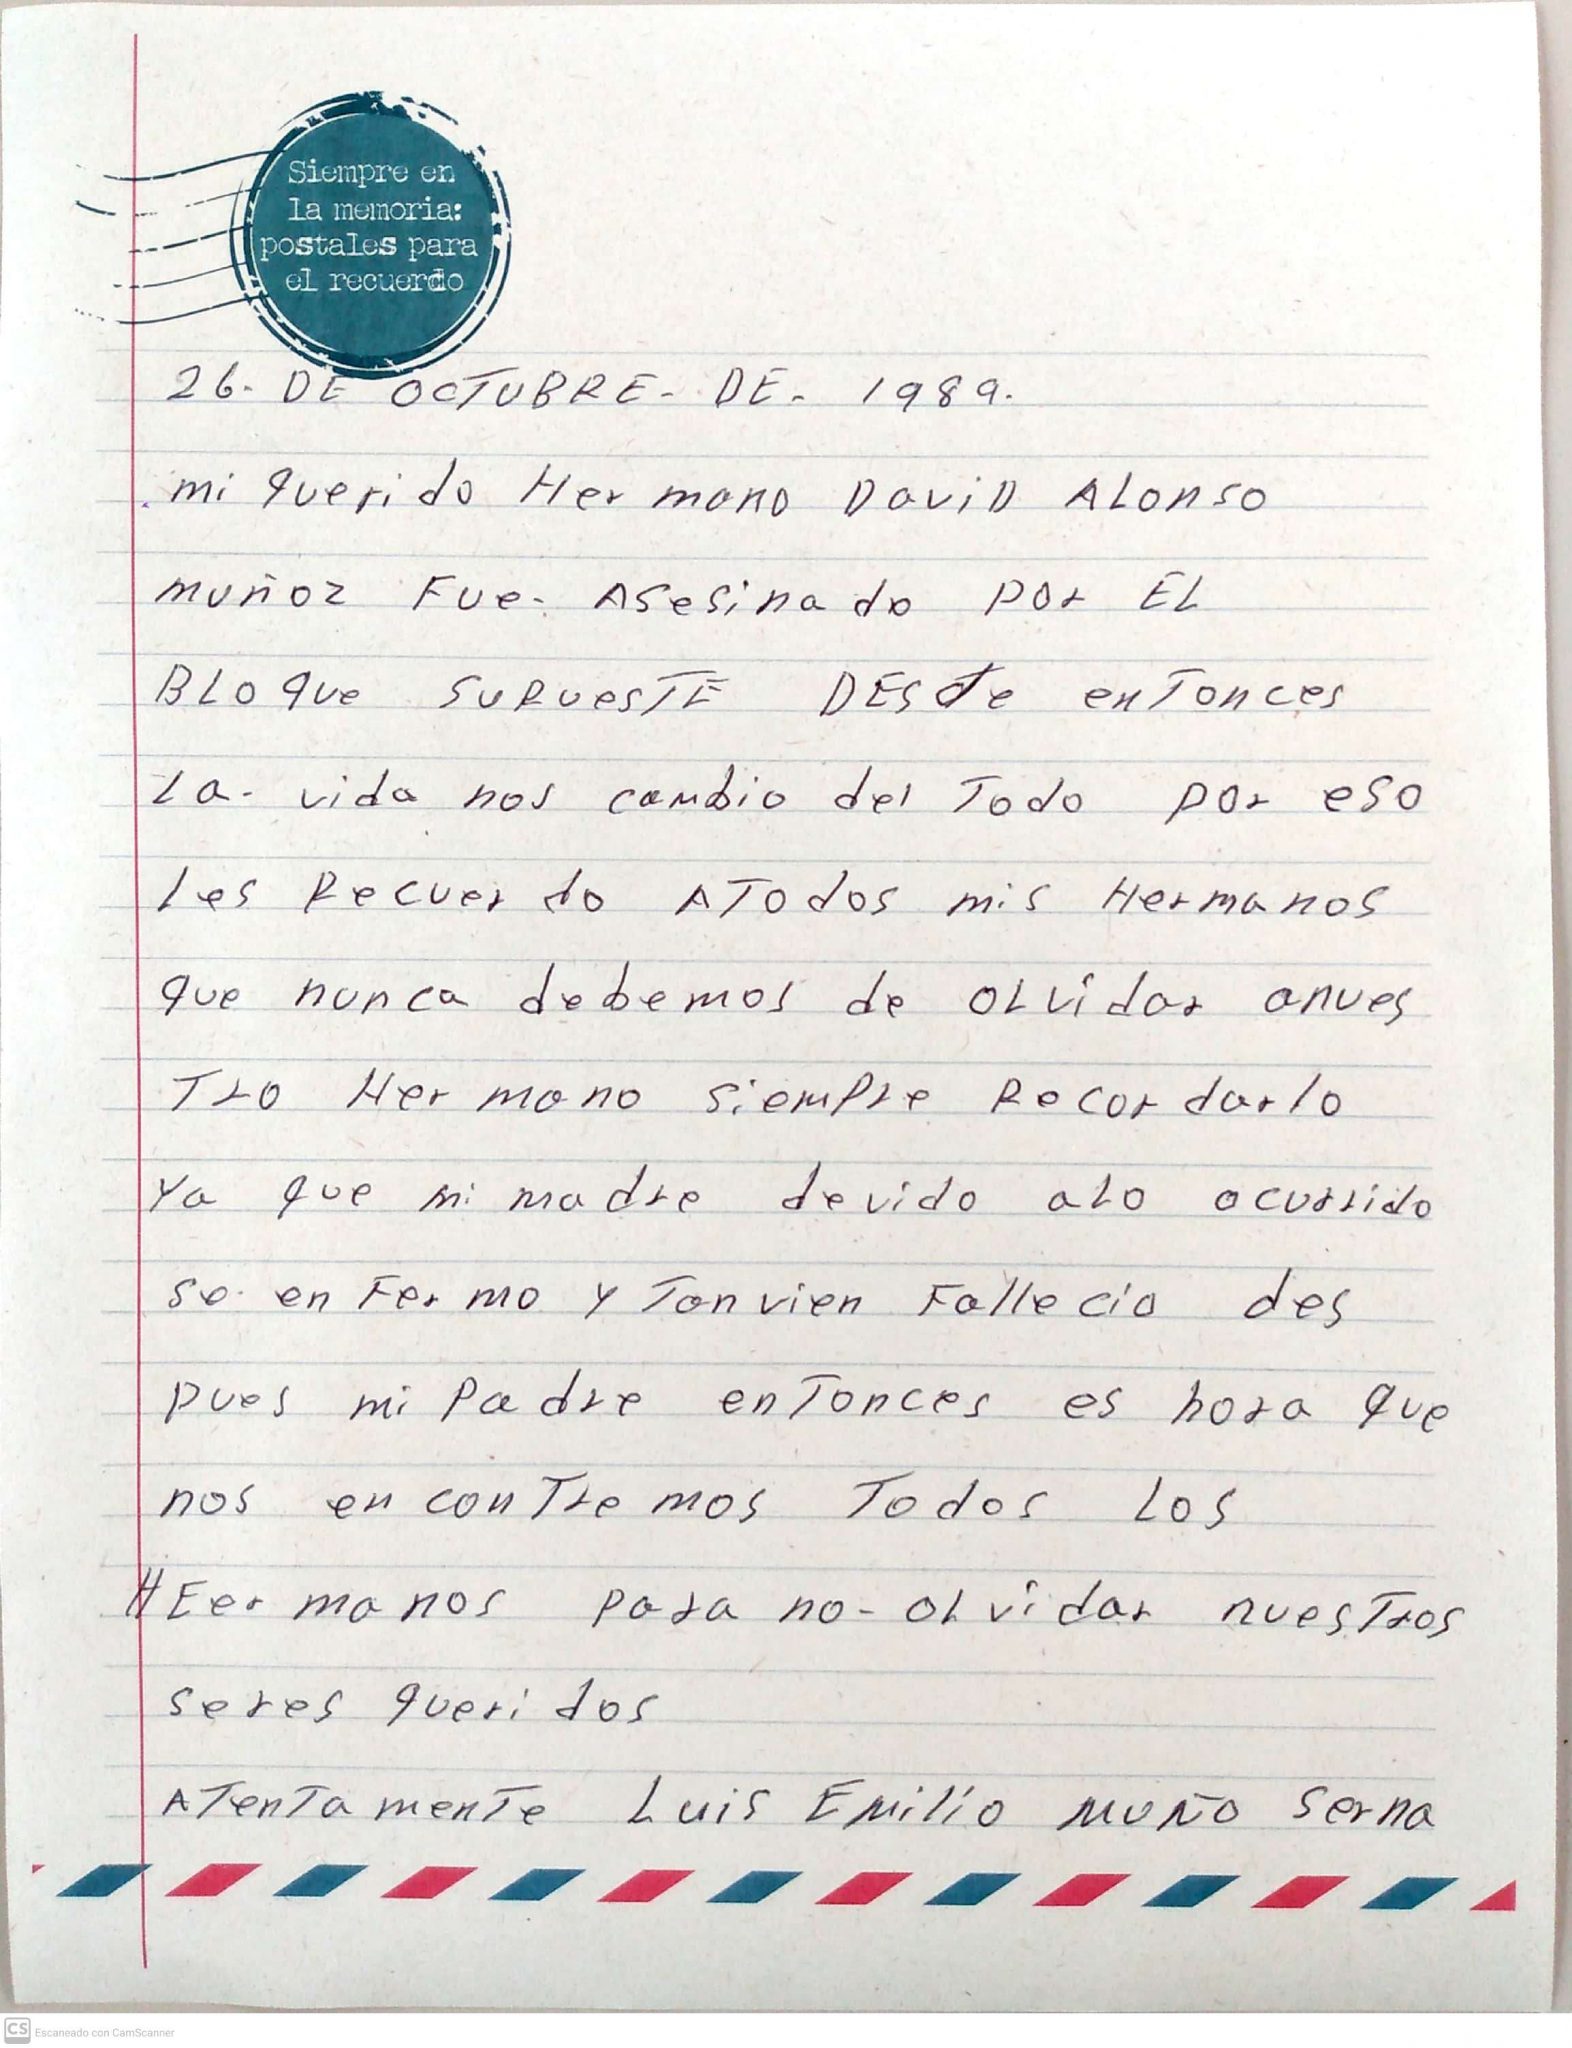 Siempre en
la memoria:
postales para
el recuerdo
26. DE OCTUBRE - DE - 1989.
mi querido Hermano DaviD ALonso
muñoz Fue - Asesinado por EL
BLoque suRuesTE DESde enTonces
La - vida nos cambio del Todo por eso
les Recuerdo ATodos mis Hermanos
que nunca debemos de oLvidar anues
Tro Hermano siempre Recordarlo
Ya que mi madre devido alo ocurrido
se enFermo y Tanvien Fallecio des
pues mi Padre enTonces es hora que
nos enconTremos Todos Los
HEermanos para no - oLvidar nuesTros
seres queridos
ATenTamenTe Luis Emilio muño serna
CS Escaneado con CamScanner